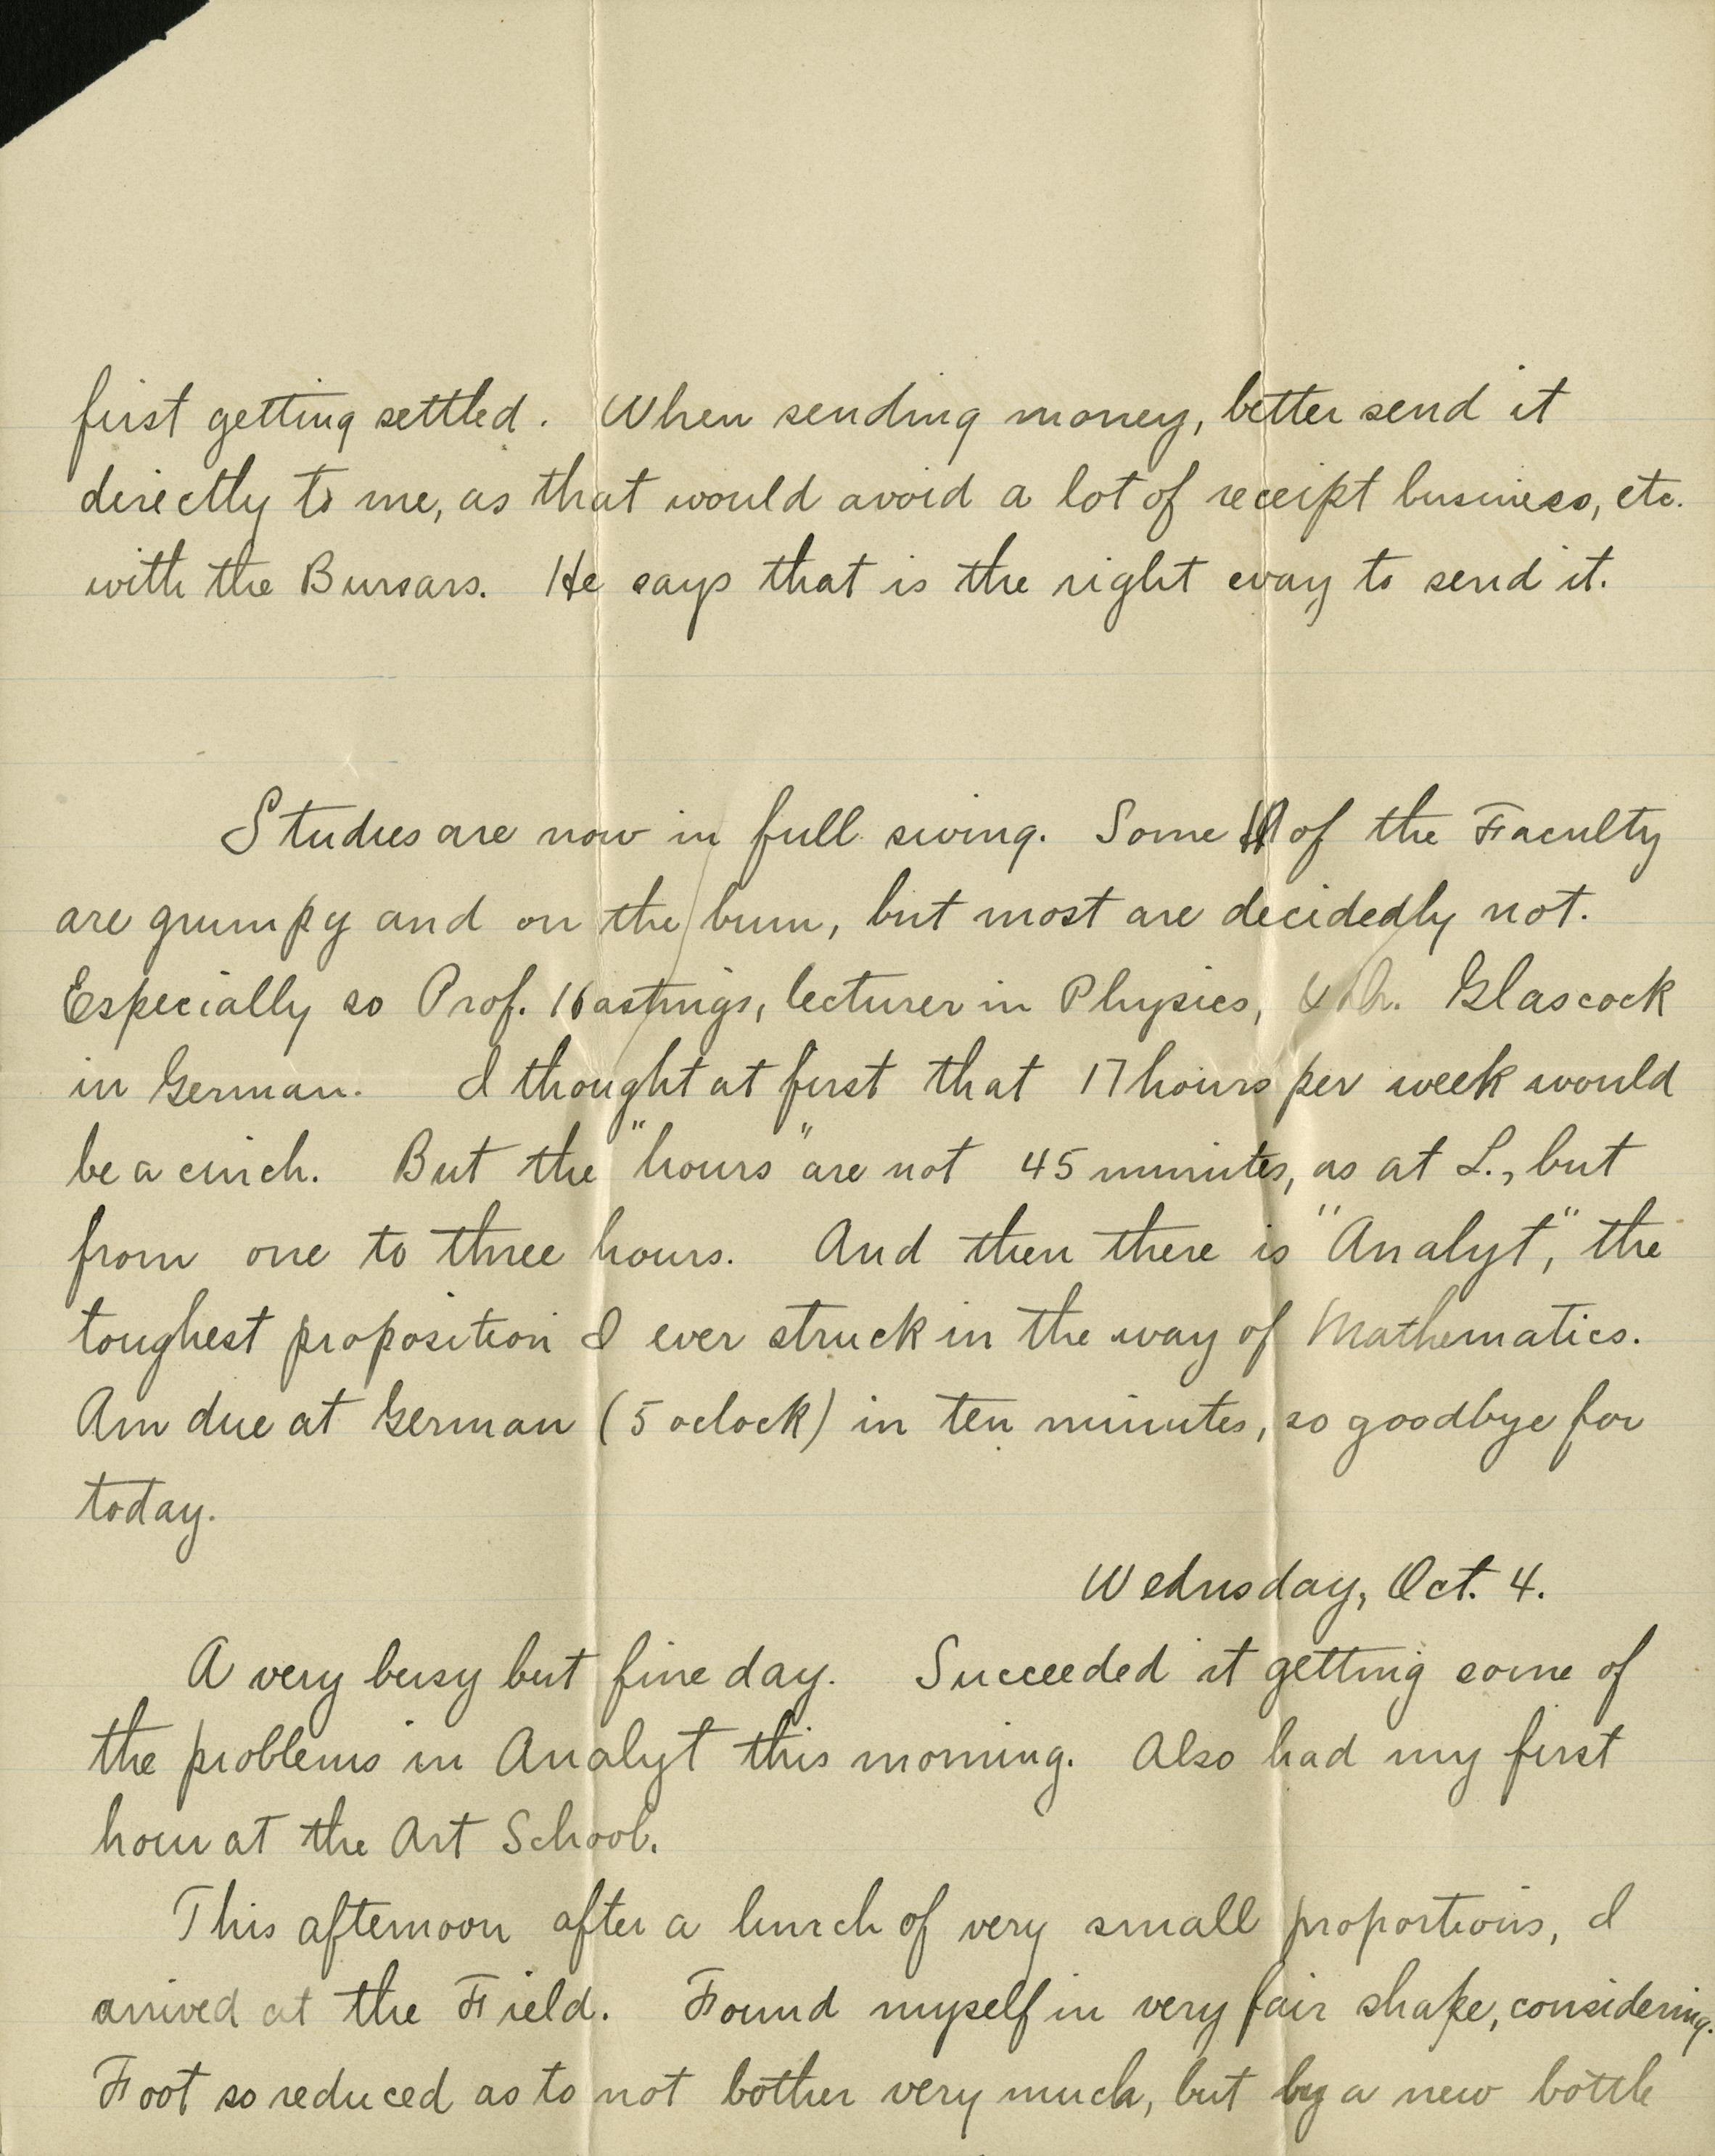 first getting settled. When sending money, better send it
directly to me, as that would avoid a lot of receipt business, etc.
with the Bursars. He says that is the right way to send it.
Studies are now in full swing. Some of the Faculty
are grumpy and on the bum, but most are decidedly not.
Especially so Prof. Hastings, lecturer in Physics, & Dr. Glascock
in German. I thought at first that 17 hours per week would
be a cinch. But the "hours" are not 45 minutes, as at L., but
from one to three hours. And then there is "Analyt", the
toughest proposition I ever struck in the way of Mathematics.
Am due at German (5 oclock) in ten minutes, so goodbye for
today.
Wednsday, Oct. 4.
A very busy but fine day. Succeeded it getting some of
the problems in Analyt this morning. Also had my first
hour at the Art School.
This afternoon after a lunch of very small proportions, I
arrived at the Field. Found myself in very fair shape, considering.
Foot so reduced as to not bother very much, but by a new bottle